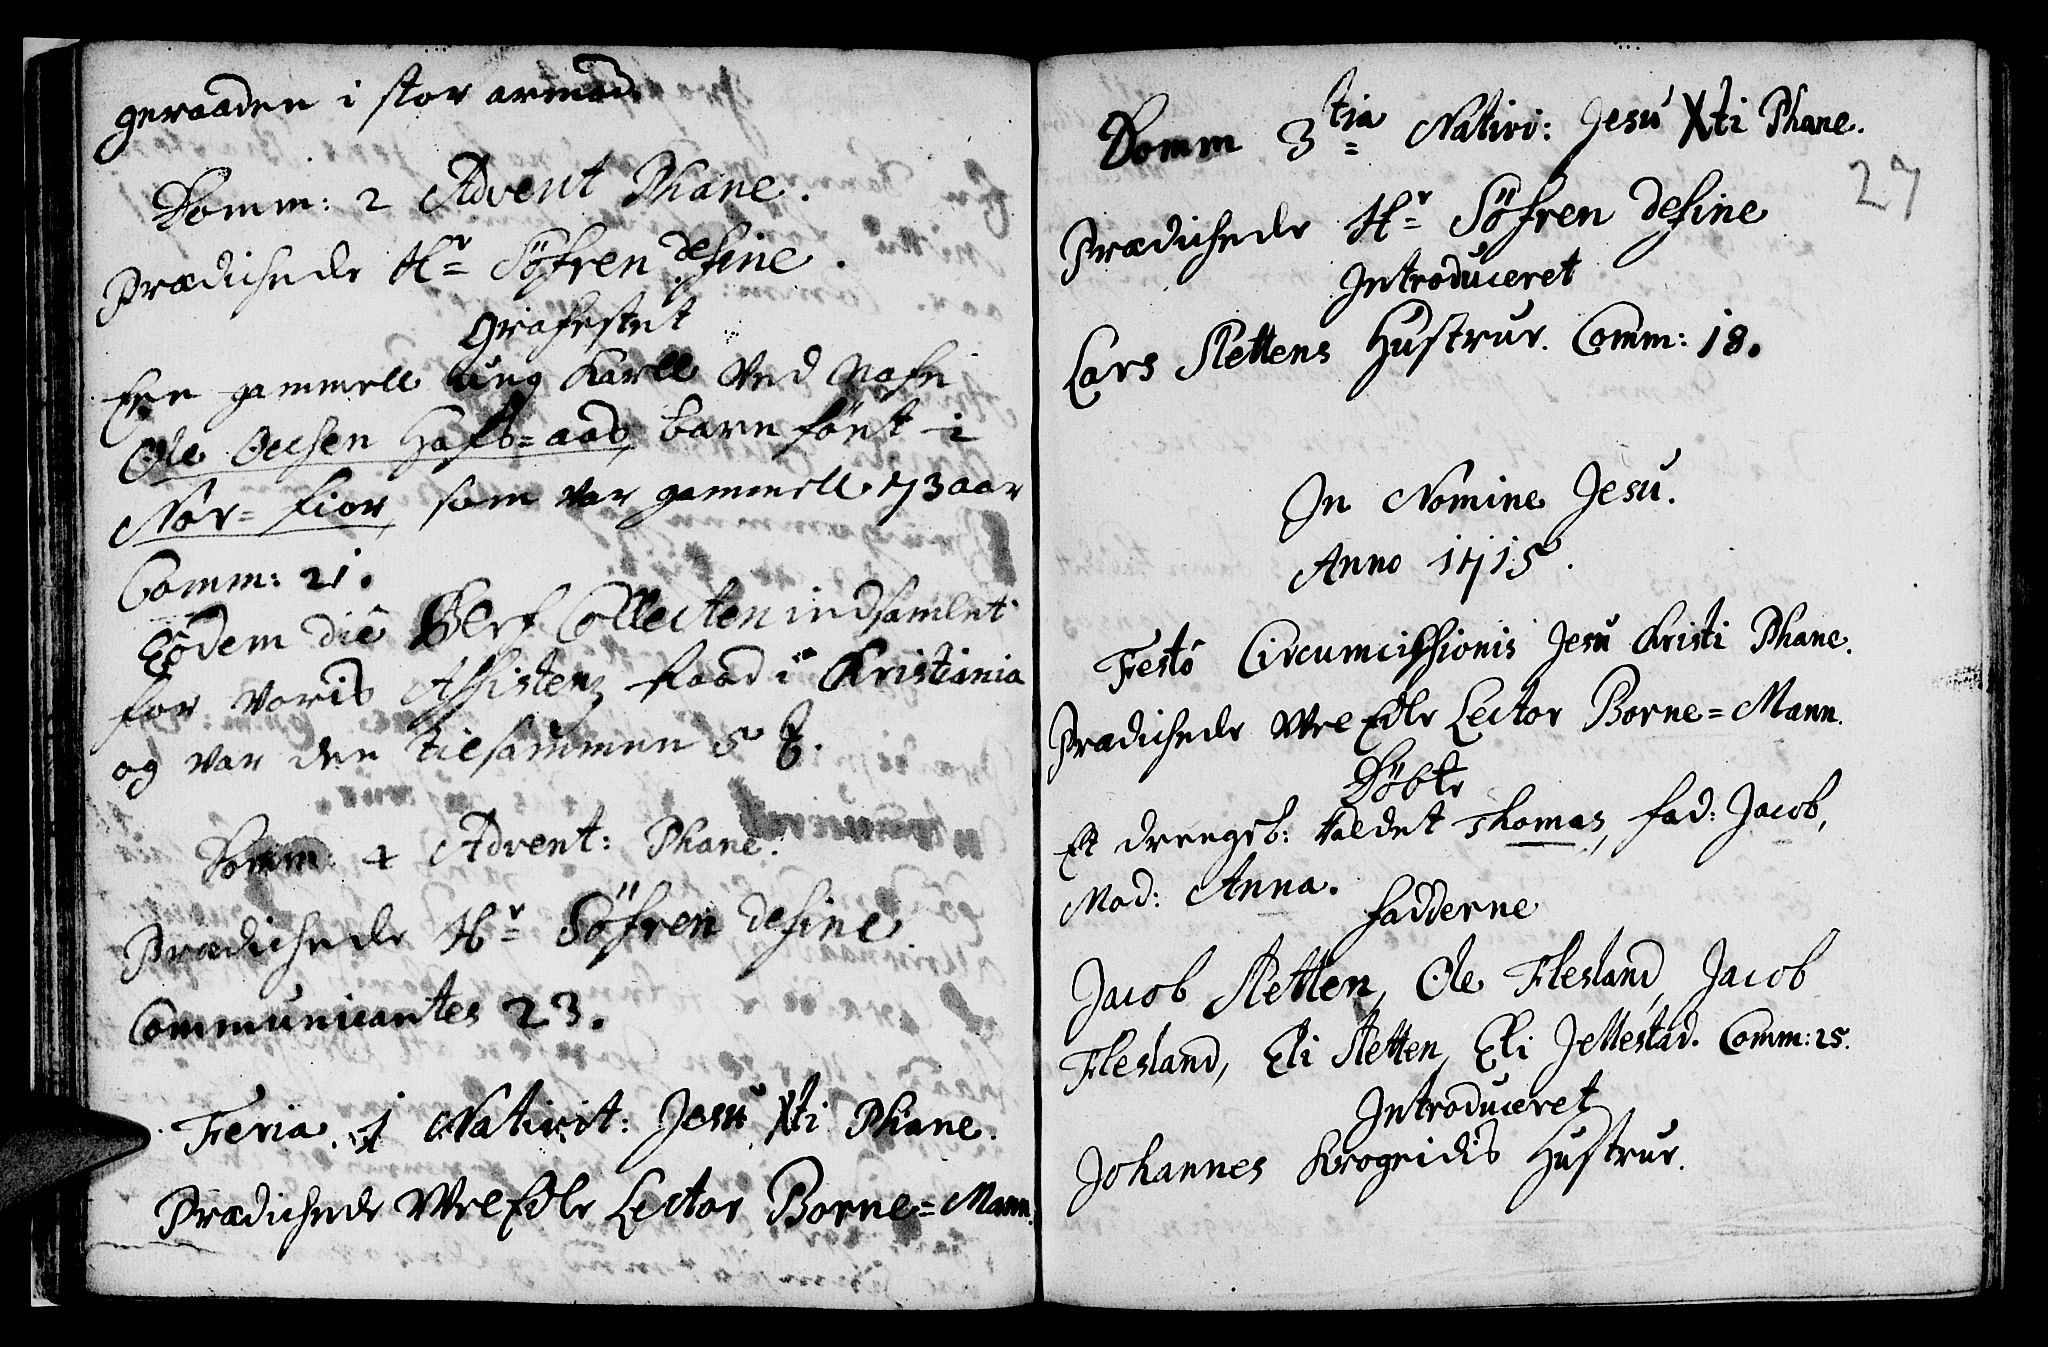 geraaden i stor armod.
Domm: 2 Advent Phane.
Prædichede Hr Söfren de fine.
Grafestet
Een gammell ung Karll ved Nafn
Ole Olsen Hafs=aas, barn föut i
Nor=fior, som var gammell 73 aar
Comm: 21.
Eodem die blef Collecten indsamlet
for voris Assistenz Raad i Kristiania
og var den tilsammen 5
Domm: 4 Advent: Phane.
Prædichede Hr Söfren de fine.
Communicantes 23.
Feria 1 Nativit: Jesu Xti Phane.
Prædichede WelEdle Lector Borne=Mann.
27
Domm 3tia Nativi: Jesu Xti Phane.
Prædichede Hr Söfren de fine
Introduceret
Lars Slettens Hustrur. Comm: 18.
In Nomine Jesu.
Anno 1715.
Festo Circumcissionis Jesu Kristi Phane.
Prædichede WelEdle Lector Borne=Mann.
Döbte
Et drengeb: kaldet Thomas, fad: Jacob,
Mod: Anna.
fadderne
Jacob Sletten, Ole Flesland, Jacob
Flesland, Eli Sletten, Eli Jellestad. Comm: 25.
Introduceret
Johannes Krogeidis Hustrur.